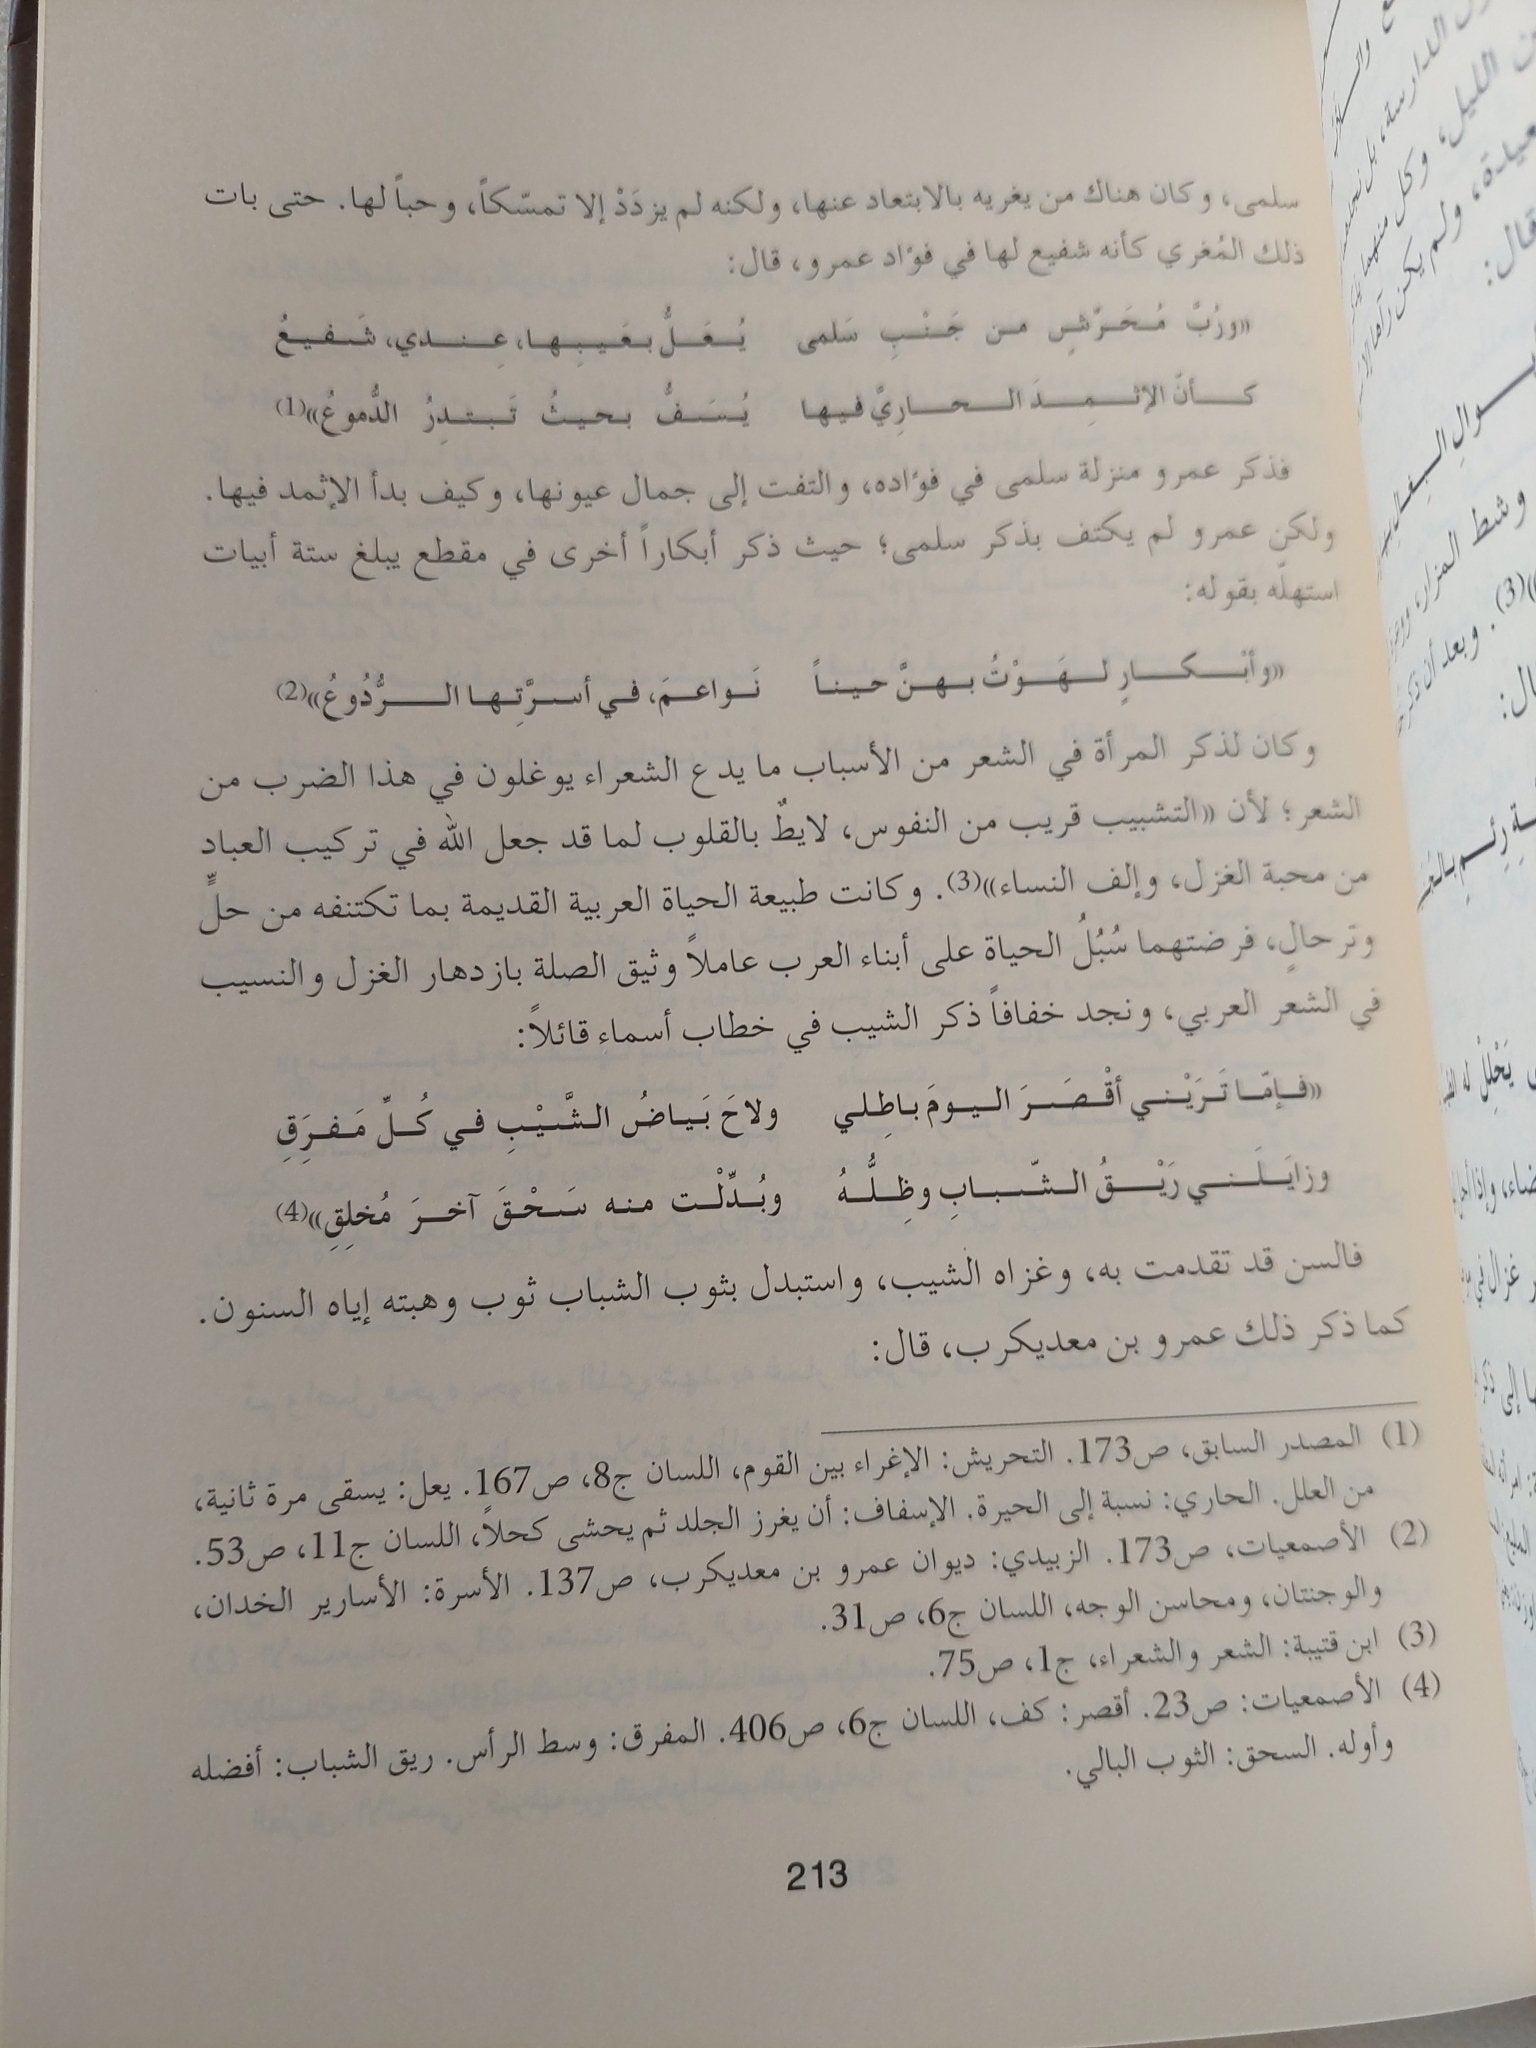 سلمى، وكان هناك من يغريه بالابتعاد عنها، ولكنه لم يزدَدْ إلا تمسّكاً، وحباً لها. حتى بات
ذلك المُغري كأنه شفيع لها في فؤاد عمرو، قال:
«ورُبَّ مُحَرِّشٍ من جَنْبِ سَلمى يُعَلُّ بعَيبِها، عِندي، شَفيعُ
كأنّ الإثمِدَ الحارِيَّ فيها يُسَفُّ بحيثُ تَبتدِرُ الدُّموعُ»(1)
فذكر عمرو منزلة سلمى في فؤاده، والتفت إلى جمال عيونها، وكيف بدأ الإثمد فيها.
ولكن عمرو لم يكتف بذكر سلمى؛ حيث ذكر أبكاراً أخرى في مقطع يبلغ ستة أبيات
استهلّه بقوله:
«وأبْكارٍ لهَوْتُ بهنَّ حيناً نَواعمَ، في أسرَّتِها الرُّدُوعُ»(2)
وكان لذكر المرأة في الشعر من الأسباب ما يدع الشعراء يوغلون في هذا الضرب من
الشعر؛ لأن «التشبيب قريب من النفوس، لايطٌ بالقلوب لما قد جعل الله في تركيب العباد
من محبة الغزل، وإلف النساء»(3). وكانت طبيعة الحياة العربية القديمة بما تكتنفه من حلٍّ
وترحالٍ، فرضتهما سُبُلُ الحياة على أبناء العرب عاملاً وثيق الصلة بازدهار الغزل والنسيب
في الشعر العربي، ونجد خفافاً ذكر الشيب في خطاب أسماء قائلاً:
«فإمّا تَرَيْني أقْصَرَ اليومَ باطِلي ولاحَ بَياضُ الشَّيْبِ في كُلِّ مَفرَقِ
وزايَلَني رَيْقُ الشّبابِ وظِلُّهُ وبُدِّلْت منه سَحْقَ آخرَ مُخلِقِ»(4)
فالسن قد تقدمت به، وغزاه الشيب، واستبدل بثوب الشباب ثوب وهبته إياه السنون.
كما ذكر ذلك عمرو بن معديكرب، قال:
(1) المصدر السابق، ص173. التحريش: الإغراء بين القوم، اللسان ج8، ص167. يعل: يسقى مرة ثانية،
من العلل. الحاري: نسبة إلى الحيرة. الإسفاف: أن يغرز الجلد ثم يحشى كحلاً، اللسان ج11، ص53.
(2) الأصمعيات، ص173. الزبيدي: ديوان عمرو بن معديكرب، ص137. الأسرة: الأسارير الخدان،
والوجنتان، ومحاسن الوجه، اللسان ج6، ص31.
(3) ابن قتيبة: الشعر والشعراء، ج1، ص75.
(4) الأصمعيات: ص23. أقصر: كف، اللسان ج6، ص406. المفرق: وسط الرأس. ريق الشباب: أفضله
وأوله. السحق: الثوب البالي.
213